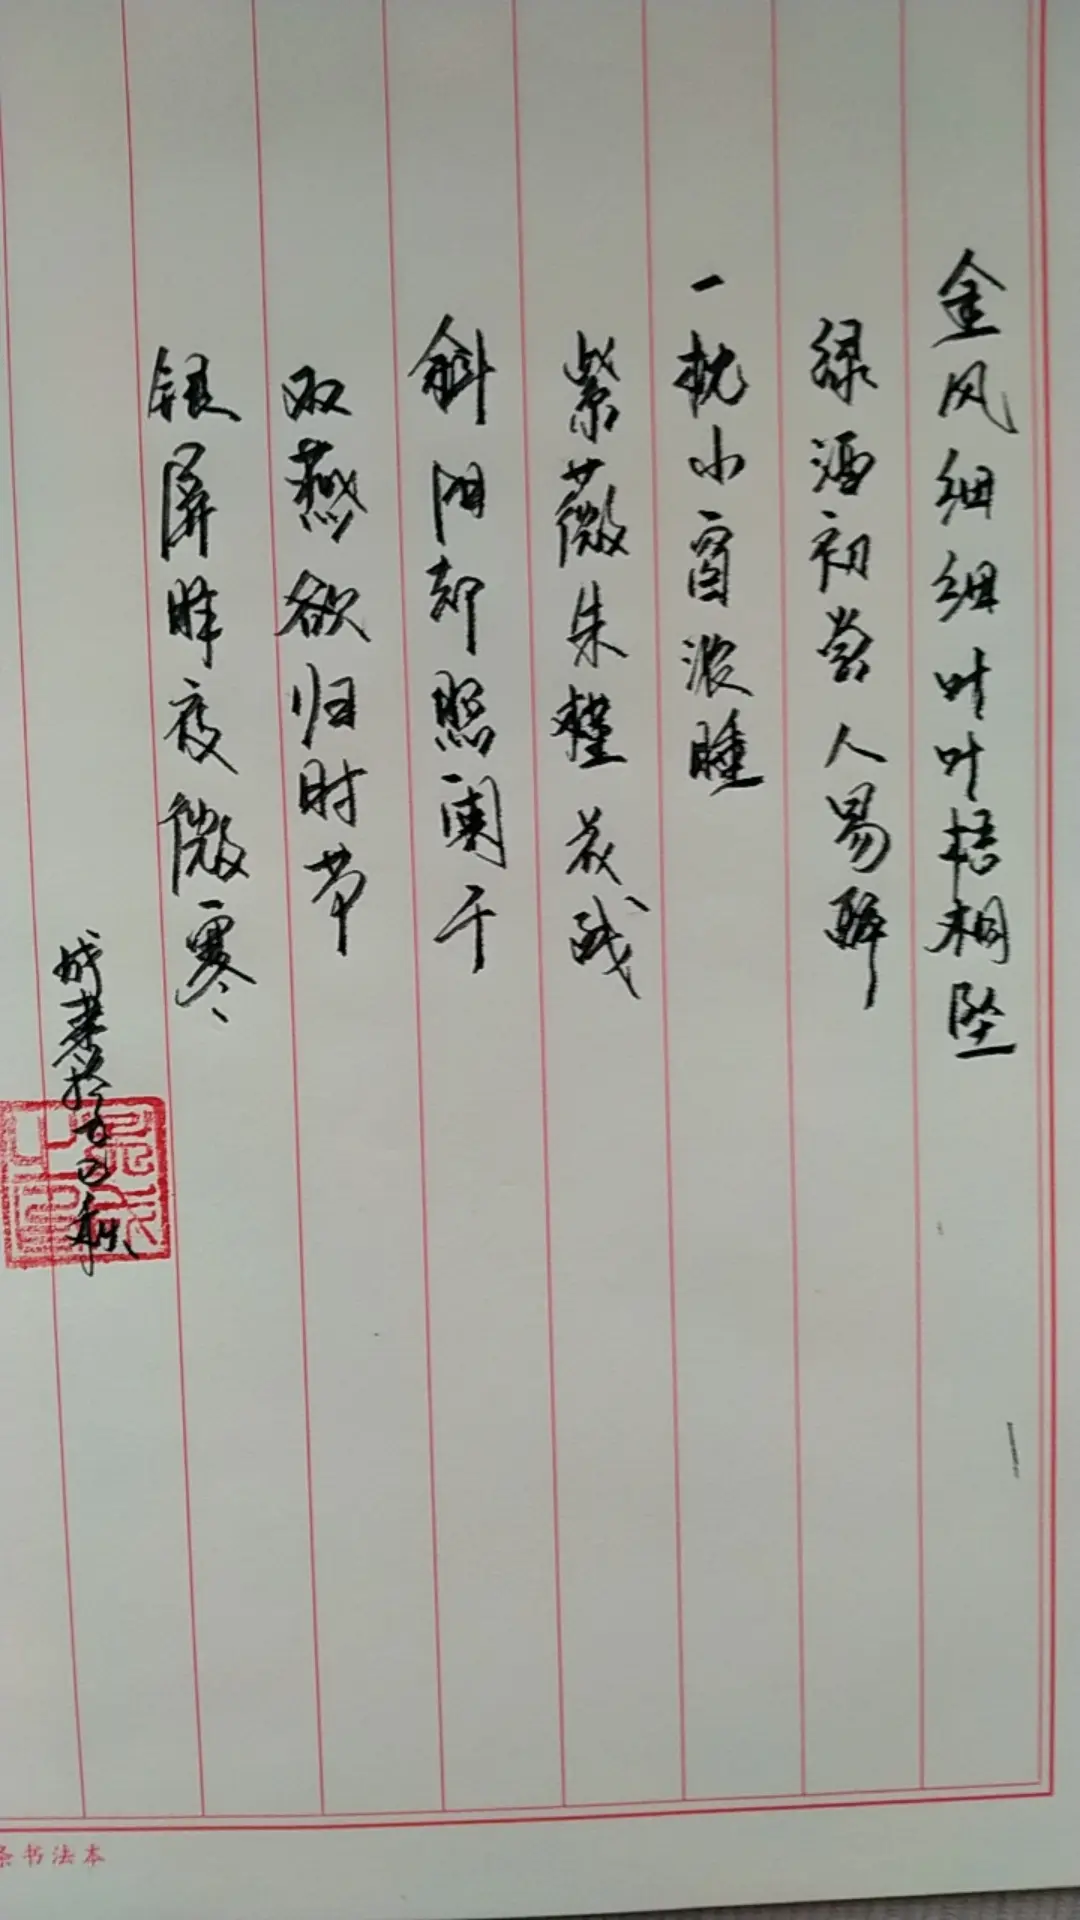 金风细细叶叶梧桐坠
绿酒初尝人易醉
一枕小窗浓睡
紫薇朱槿花残
斜阳却照阑干
双燕欲归时节
银屏昨夜微寒
成書於乙巳秋
条书法本